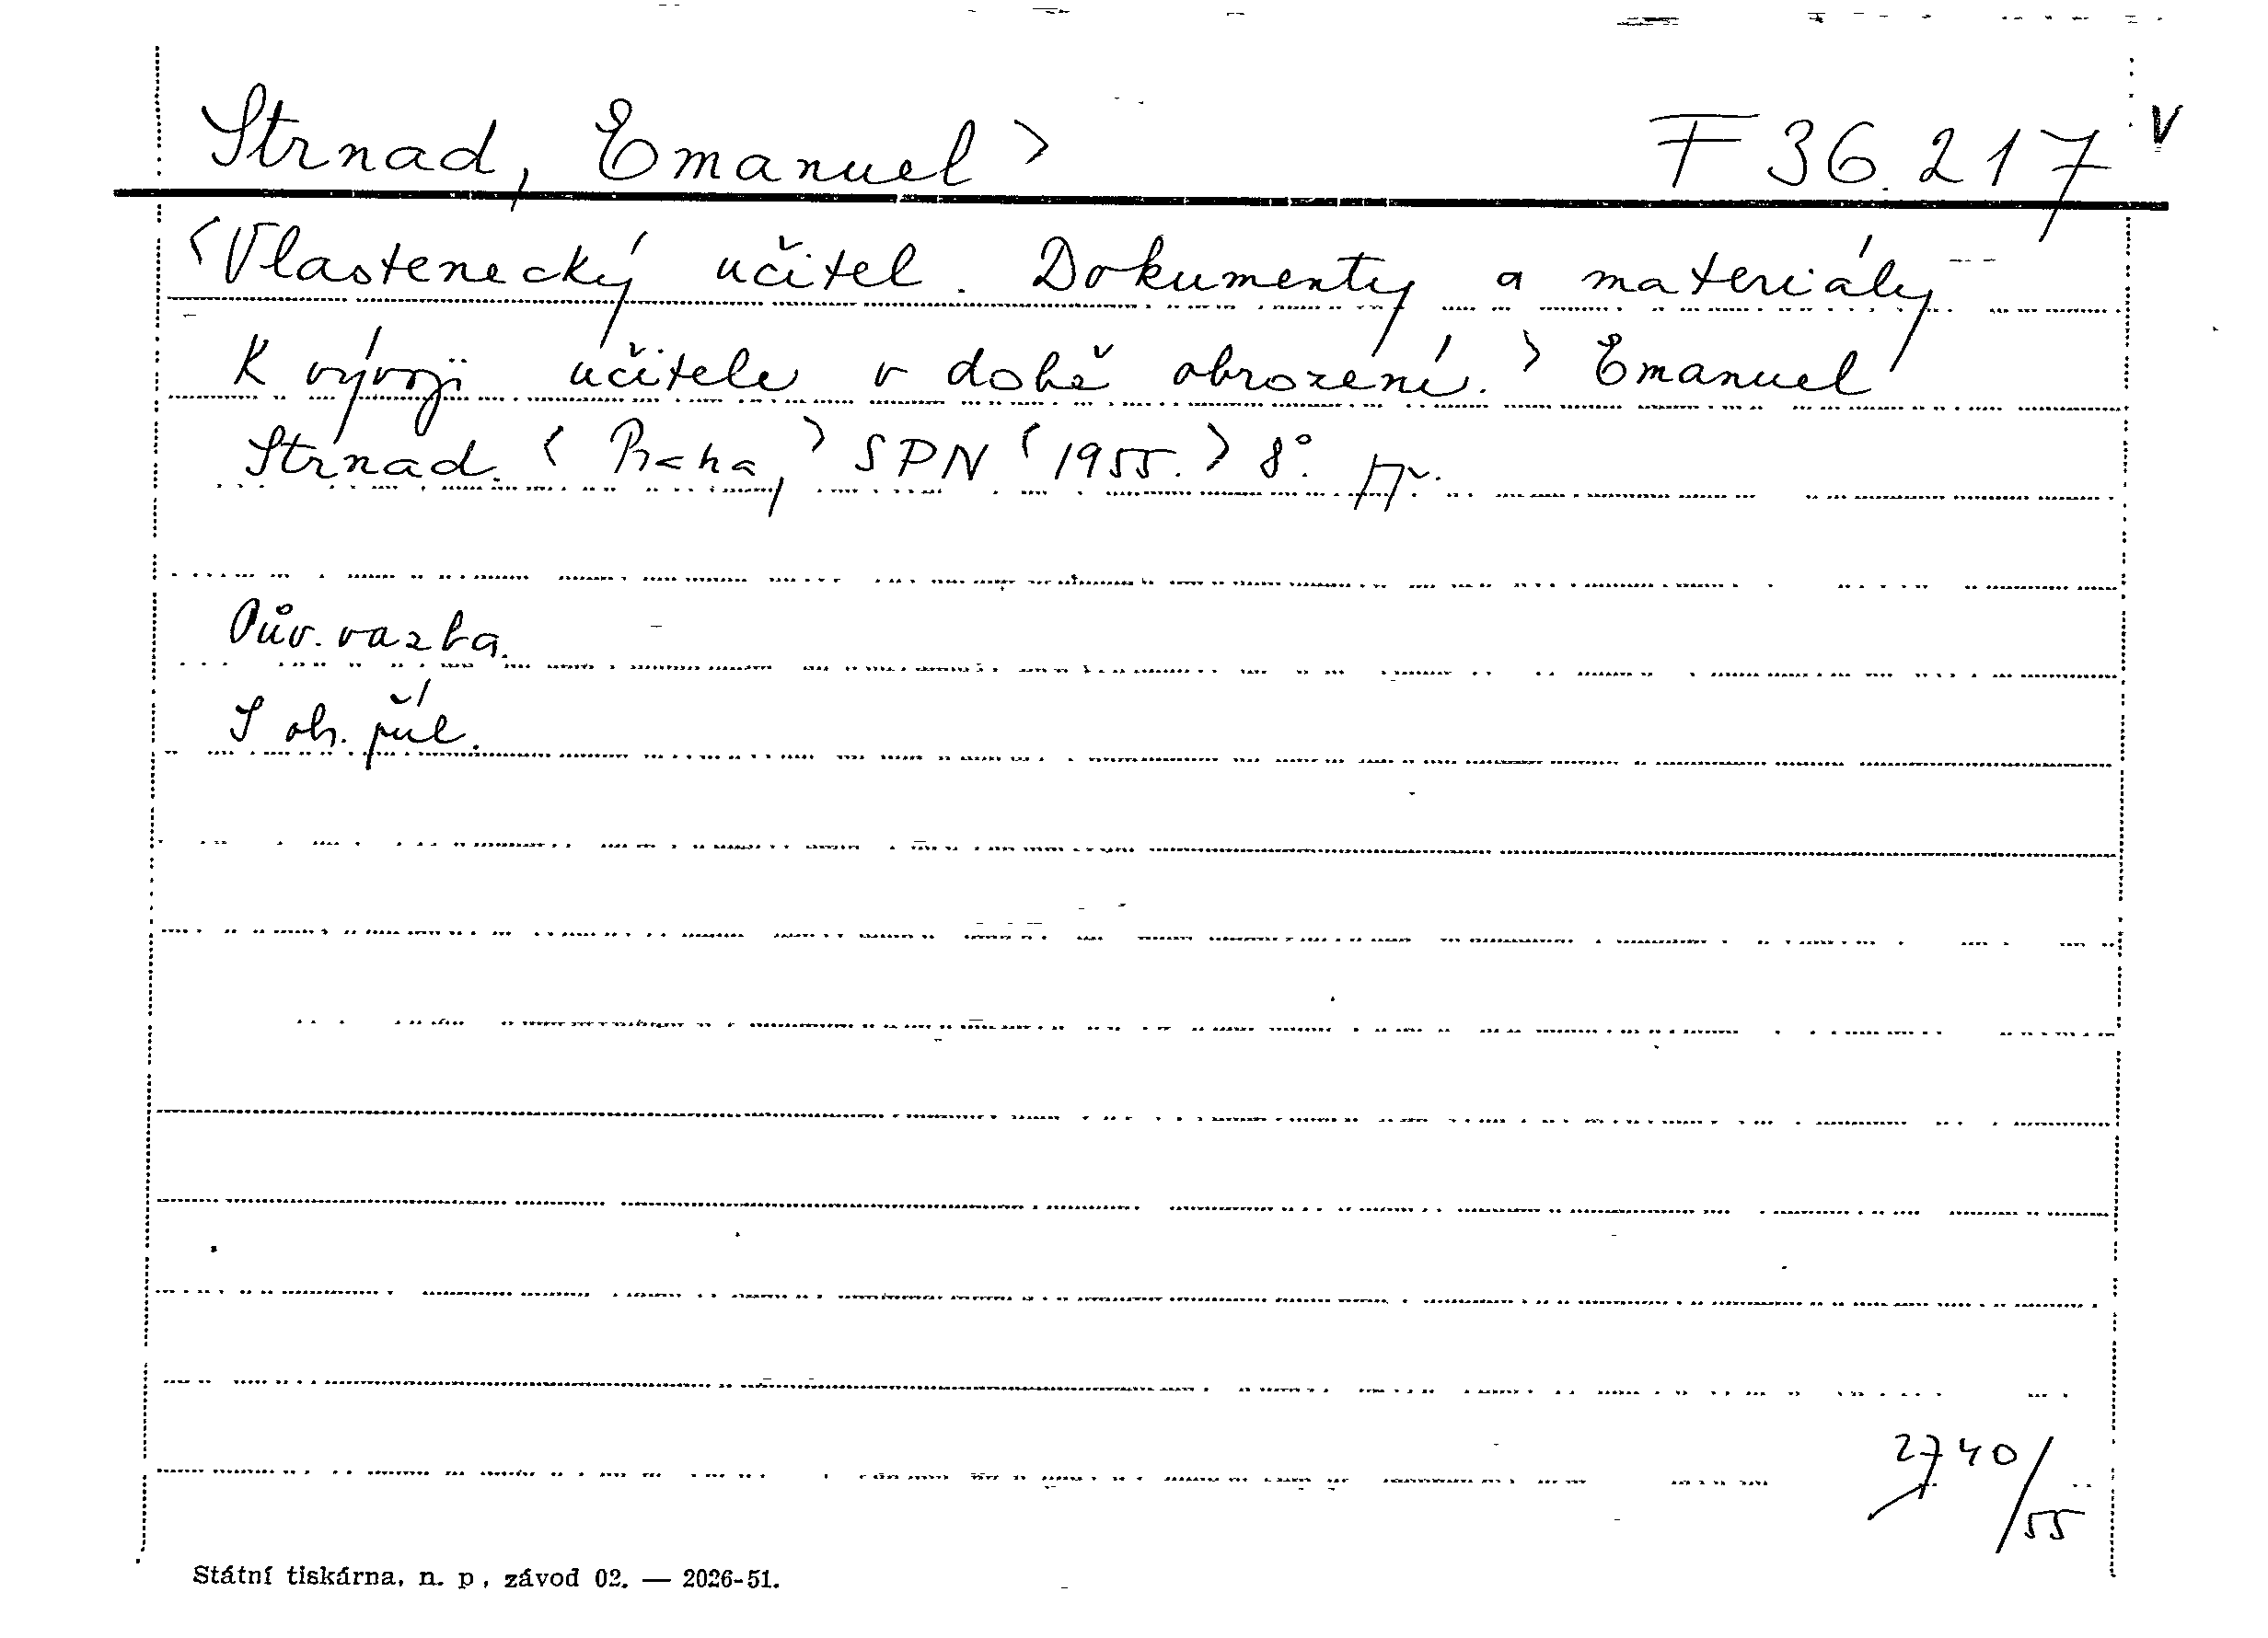 Strnad, Emanuel > F 36.217 V
<Vlastenecký učitel. Dokumenty a materiály
K vývoji učitele v době obrození.> Emanuel
Strnad. <Praha,> SPN <1955.> 8°.
Pův. vazba.
S ob. příl.
2740/55
Státní tiskárna, n. p., závod 02. — 2026-51.